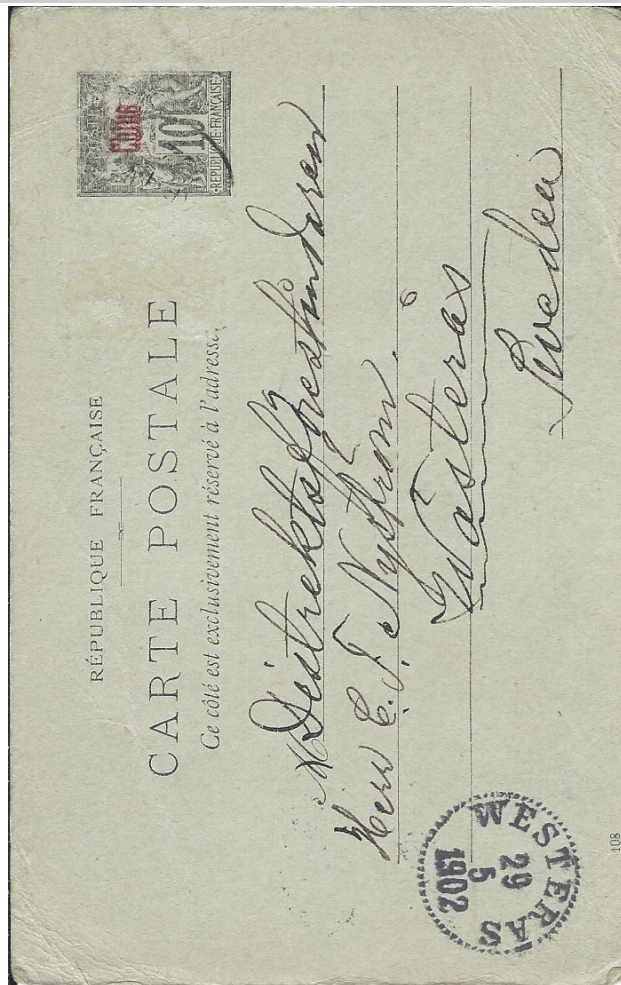 RÉPUBLIQUE FRANÇAISE
CARTE POSTALE
Ce côté est exclusivement réservé à l'adresse.
POSTE
Chine
10
REPUBLIQUE FRANÇAISE
M Distriktsföreståndaren
Herr C. F. Nyström.
Wästerås
Sweden
WESTERÅS
29
5
1902
108